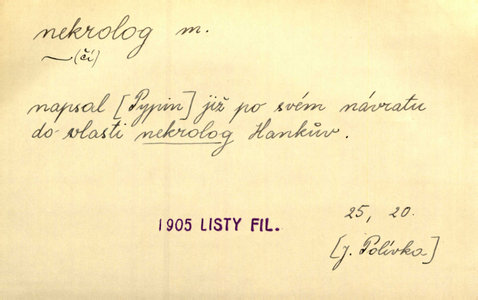 nekrolog m.
(čí)
napsal [Pypin] již po svém návratu
do vlasti nekrolog Hankův.
1905 LISTY FIL.
25, 20.
[J. Polívka]